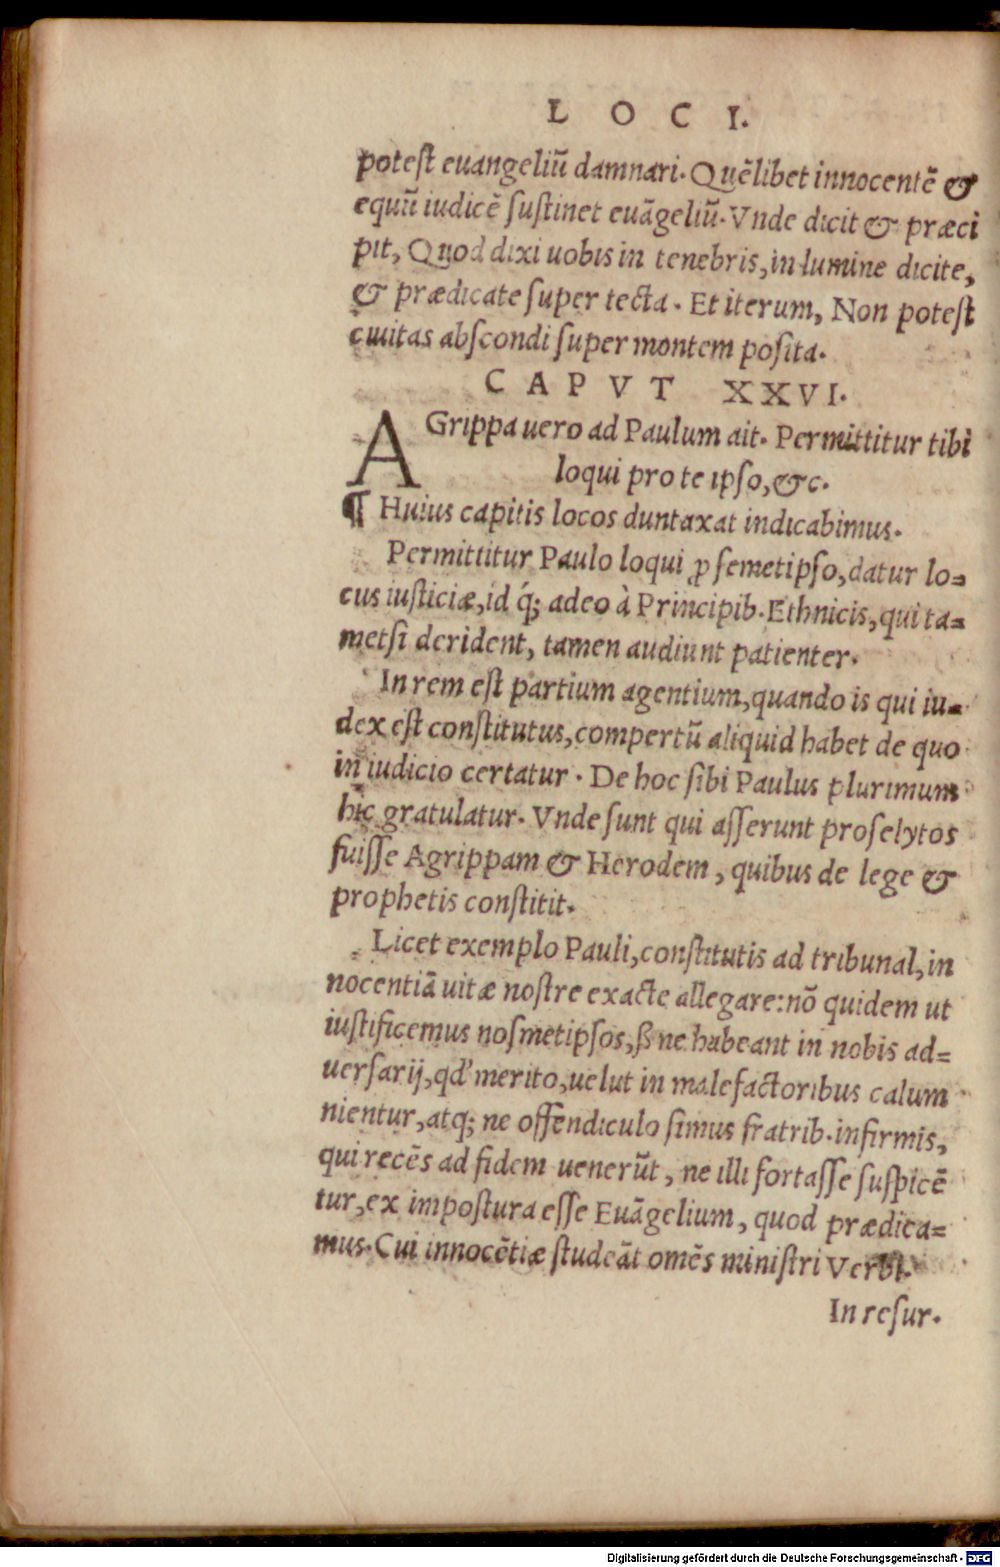 L O C I.
potest euangeliũ damnari. Quẽlibet innocentẽ &
equũ iudicẽ sustinet euãgeliũ. Vnde dicit & præci
pit, Quod dixi uobis in tenebris, in lumine dicite,
& prædicate super tecta. Et iterum, Non potest
ciuitas abscondi super montem posita.
C A P V T XXVI.
AGrippa uero ad Paulum ait. Permittitur tibi
loqui pro te ipso, &c.
¶ Huius capitis locos duntaxat indicabimus.
Permittitur Paulo loqui ꝓ semetipso, datur lo=
cus iusticiæ, id q́; adeo à Principib. Ethnicis, qui ta=
metsi derident, tamen audiunt patienter.
In rem est partium agentium, quando is qui iu=
dex est constitutus, compertũ aliquid habet de quo
in iudicio certatur. De hoc sibi Paulus plurimum
hic gratulatur. Vnde sunt qui asserunt proselytos
fuisse Agrippam & Herodem, quibus de lege &
prophetis constitit.
Licet exemplo Pauli, constitutis ad tribunal, in
nocentiã uitæ nostre exacte allegare: nõ quidem ut
iustificemus nosmetipsos, ß ne habeant in nobis ad=
uersarij, qd' merito, uelut in malefactoribus calum
nientur, atq; ne offendiculo simus fratrib. infirmis,
qui recẽs ad fidem uenerũt, ne illi fortasse suspicẽ
tur, ex impostura esse Euãgelium, quod prædica=
mus. Cui innocẽtiæ studeãt omẽs ministri Verbi.
In resur.
Digitalisierung gefördert durch die Deutsche Forschungsgemeinschaft - DFG